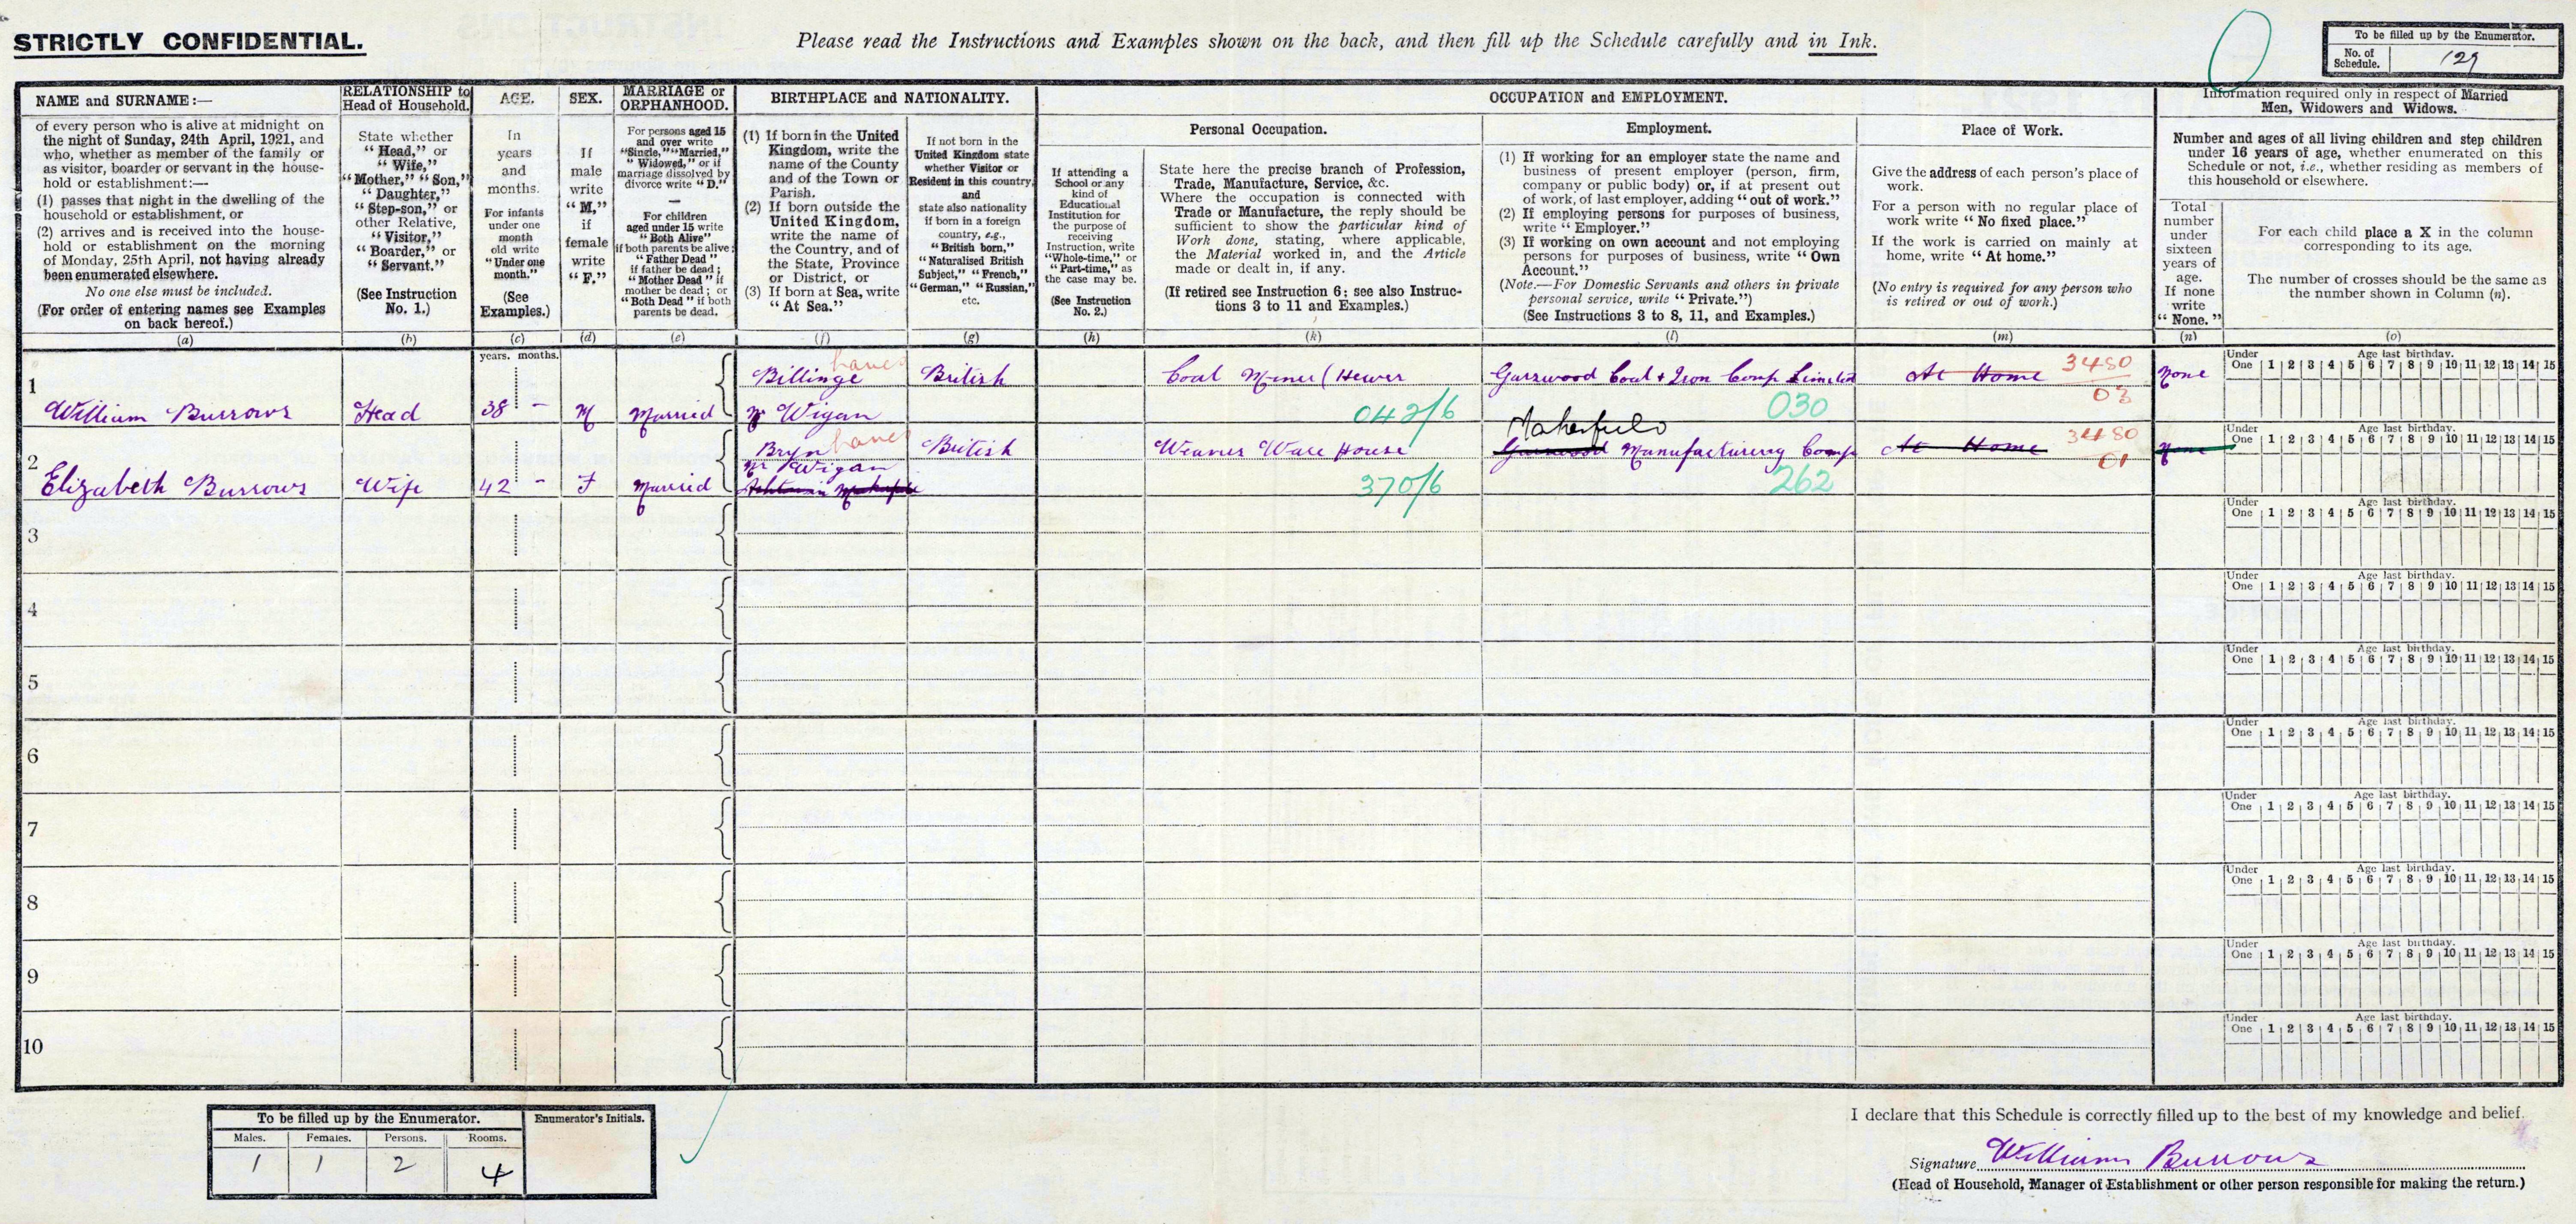 STRICTLY CONFIDENTIAL.
Please read the Instructions and Examples shown on the back, and then fill up the Schedule carefully and in Ink.
To be filled up by the Enumerator.
No. of Schedule. 129
NAME and SURNAME:—
of every person who is alive at midnight on
the night of Sunday, 24th April, 1921, and
who, whether as member of the family or
as visitor, boarder or servant in the house-
hold or establishment:—
(1) passes that night in the dwelling of the
household or establishment, or
(2) arrives and is received into the house-
hold or establishment on the morning
of Monday, 25th April, not having already
been enumerated elsewhere.
No one else must be included.
(For order of entering names see Examples
on back hereof.)
(a)
RELATIONSHIP to
Head of Household.
State whether
"Head," or
"Wife,"
"Mother," "Son,"
"Daughter,"
"Step-son," or
other Relative,
"Visitor,"
"Boarder," or
"Servant."
(See Instruction
No. 1.)
(b)
AGE.
In
years
and
months.
For infants
under one
month
old write
"Under one
month."
(See
Examples.)
(c)
SEX.
If
male
write
"M,"
if
female
write
"F."
(d)
MARRIAGE or
ORPHANHOOD.
For persons aged 15
and over write
"Single," "Married,"
"Widowed," or if
marriage dissolved by
divorce write "D."
—
For children
aged under 15 write
"Both Alive"
if both parents be alive;
"Father Dead"
if father be dead;
"Mother Dead" if
mother be dead; or
"Both Dead" if both
parents be dead.
(e)
BIRTHPLACE and NATIONALITY.
(1) If born in the United
Kingdom, write the
name of the County
and of the Town or
Parish.
(2) If born outside the
United Kingdom,
write the name of
the Country, and of
the State, Province
or District, or
(3) If born at Sea, write
"At Sea."
(f)
If not born in the
United Kingdom state
whether Visitor or
Resident in this country,
and
state also nationality
if born in a foreign
country, e.g.,
"British born,"
"Naturalised British
Subject," "French,"
"German," "Russian,"
etc.
(g)
OCCUPATION and EMPLOYMENT.
If attending a
School or any
kind of
Educational
Institution for
the purpose of
receiving
Instruction, write
"Whole-time," or
"Part-time," as
the case may be.
(See Instruction
No. 2.)
(h)
Personal Occupation.
State here the precise branch of Profession,
Trade, Manufacture, Service, &c.
Where the occupation is connected with
Trade or Manufacture, the reply should be
sufficient to show the particular kind of
Work done, stating, where applicable,
the Material worked in, and the Article
made or dealt in, if any.
(If retired see Instruction 6; see also Instruc-
tions 3 to 11 and Examples.)
(k)
Employment.
(1) If working for an employer state the name and
business of present employer (person, firm,
company or public body) or, if at present out
of work, of last employer, adding "out of work."
(2) If employing persons for purposes of business,
write "Employer."
(3) If working on own account and not employing
persons for purposes of business, write "Own
Account."
(Note.—For Domestic Servants and others in private
personal service, write "Private.")
(See Instructions 3 to 8, 11, and Examples.)
(l)
Place of Work.
Give the address of each person's place of
work.
For a person with no regular place of
work write "No fixed place."
If the work is carried on mainly at
home, write "At home."
(No entry is required for any person who
is retired or out of work.)
(m)
Information required only in respect of Married
Men, Widowers and Widows.
Number and ages of all living children and step children
under 16 years of age, whether enumerated on this
Schedule or not, i.e., whether residing as members of
this household or elsewhere.
Total
number
under
sixteen
years of
age.
If none
write
"None."
(n)
For each child place a X in the column
corresponding to its age.
The number of crosses should be the same as
the number shown in Column (n).
(o)
years. months.
1 William Burrows Head 38 - M Married Billinge Nr Wigan British Coal Miner (Hewer 042/6 Garswood Coal & Iron Comp Limited 030 At Home 3480 03 None
Under One 1 2 3 4 5 6 7 8 9 10 11 12 13 14 15 Age last birthday.
2 Elizabeth Burrows Wife 42 - F Married Bryn Nr Wigan British Weaver Ware House 370/6 Makerfield Garswood Manufacturing Comp 262 At Home 3480 01 None
Under One 1 2 3 4 5 6 7 8 9 10 11 12 13 14 15 Age last birthday.
3
Under One 1 2 3 4 5 6 7 8 9 10 11 12 13 14 15 Age last birthday.
4
Under One 1 2 3 4 5 6 7 8 9 10 11 12 13 14 15 Age last birthday.
5
Under One 1 2 3 4 5 6 7 8 9 10 11 12 13 14 15 Age last birthday.
6
Under One 1 2 3 4 5 6 7 8 9 10 11 12 13 14 15 Age last birthday.
7
Under One 1 2 3 4 5 6 7 8 9 10 11 12 13 14 15 Age last birthday.
8
Under One 1 2 3 4 5 6 7 8 9 10 11 12 13 14 15 Age last birthday.
9
Under One 1 2 3 4 5 6 7 8 9 10 11 12 13 14 15 Age last birthday.
10
Under One 1 2 3 4 5 6 7 8 9 10 11 12 13 14 15 Age last birthday.
To be filled up by the Enumerator.
Males. Females. Persons. Rooms.
1 1 2 4
Enumerator's Initials.
I declare that this Schedule is correctly filled up to the best of my knowledge and belief.
Signature William Burrows
(Head of Household, Manager of Establishment or other person responsible for making the return.)